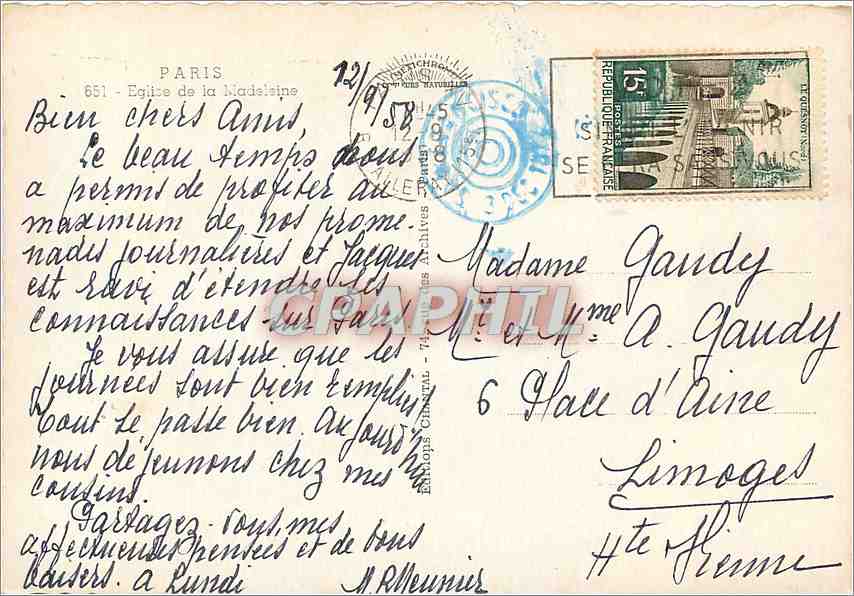 PARIS
651 - Eglise de la Madeleine
12/9/58
Bien chers Amis,
Le beau temps nous
a permis de profiter au
maximum de nos prome-
nades journalières et Jacques
est ravi d'étendre ses
connaissances sur Paris
Je vous assure que les
journées sont bien remplies
Tout se passe bien. Aujourd'hui
nous déjeunons chez mes
cousins.
Partagez-vous, mes
affectueuses pensées et de bons
baisers. à Lundi M.R Meunier
Editions CHANTAL - 74, rue des Archives - Paris
CRAPHIL
15F
POSTES
REPUBLIQUE FRANÇAISE
LE QUESNOY (Nord)
Madame Gaudy
Mr et Mme A. Gaudy
6 Place d'Aine
Limoges
Hte Vienne